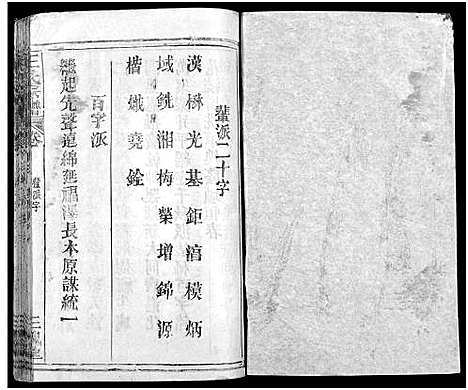 輩派二十字
漢楙光基鉅滈模炳
域銑湘梅榮增錦源
楷熾堯銓
百字派
繼起先聲遠綿延福澤長本原謀統一
王氏宗譜
卷
輩派字
三槐堂